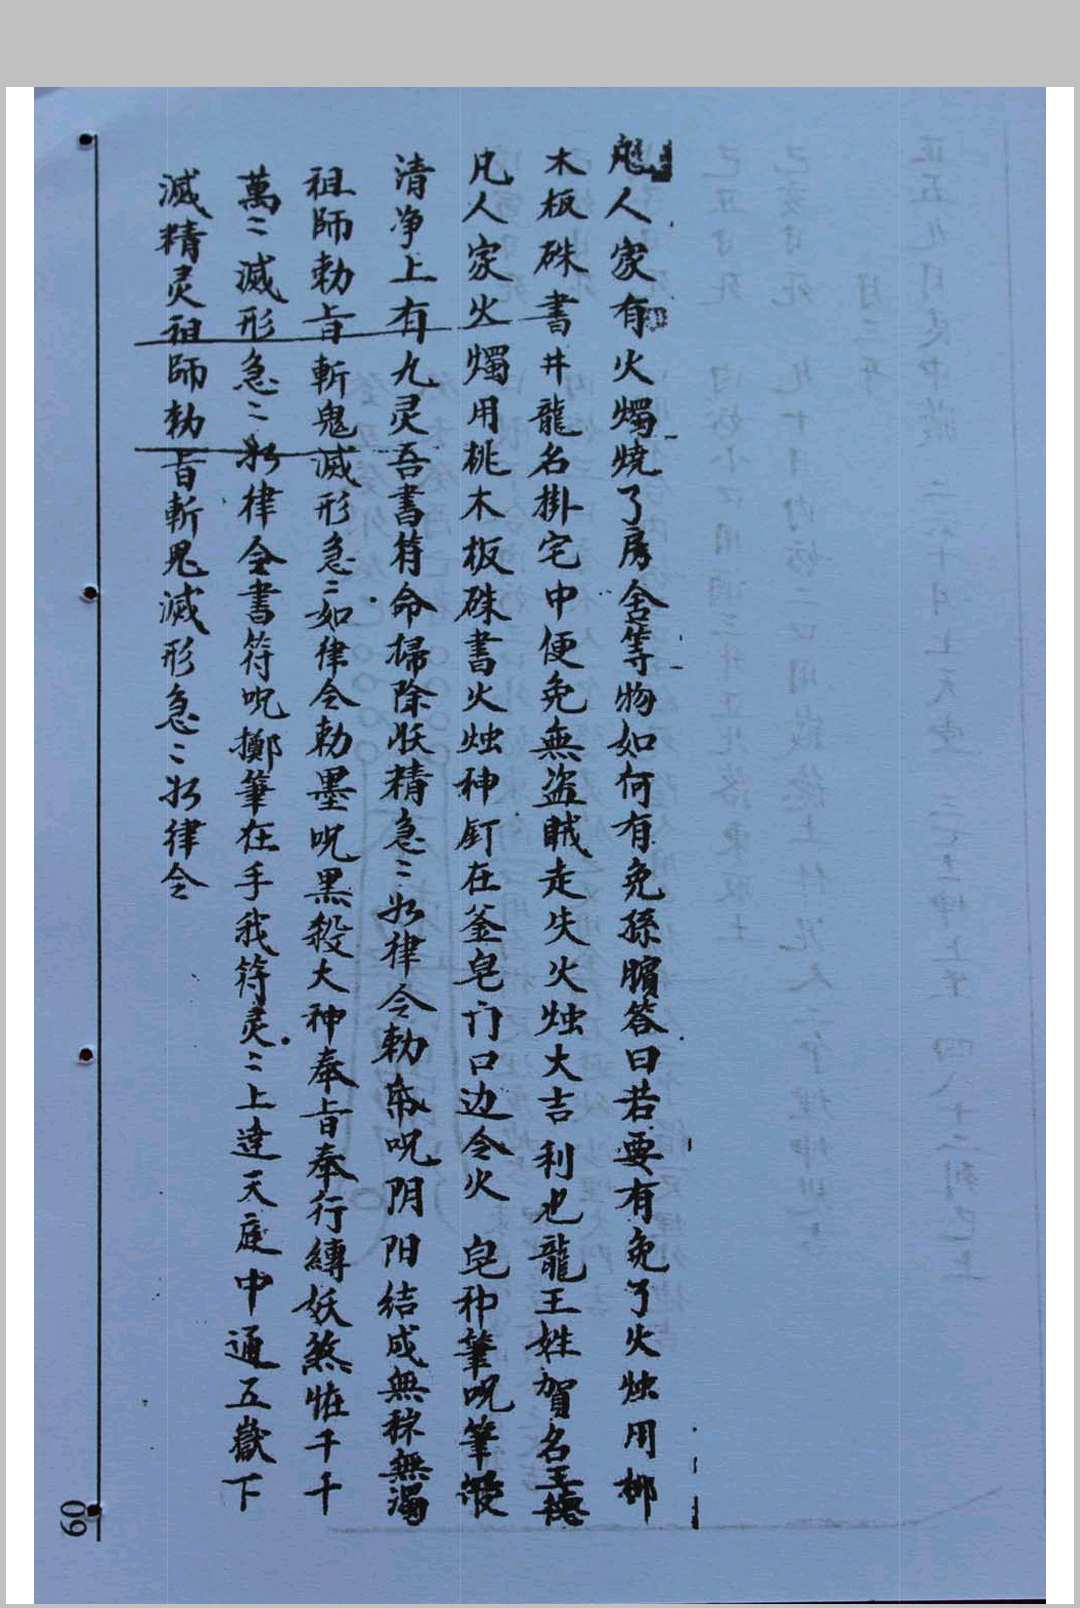 凡人家有火燭燒了房舍等物如何有免孫臏答曰若要有免了火烛用柳
木板硃書井龍名掛宅中便免無盜賊走失火烛大吉利也龍王姓賀名王德
凡人家火燭用桃木板硃書火烛神釘在釜皂门口边令火皂神筆咒筆
清净上有九灵吾書符命掃除妖精急〻如律令勅帋呪阴阳结成無秽無濁
祖師勅旨斬鬼滅形急〻如律令勅墨呪黑殺大神奉旨奉行縳妖煞怪千千
萬〻滅形急〻如律令書符呪擲筆在手我符灵〻上達天庭中通五嶽下
滅精灵祖師勅旨斬鬼滅形急〻如律令
60